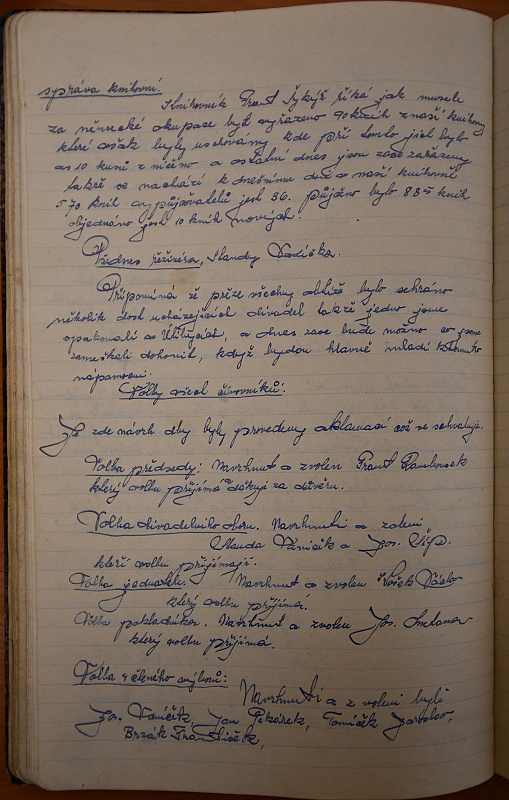 správa knihovní.
Knihovník Frant Sykyř říká jak musele
za německé okupace být vyřazeno 90 kněh z naší knihovny
které však byly uschovány kde při tomto jich bylo
as 10 kusů zničeno a ostatní dnes jsou zase zařazeny
takže se nachází k dnešnímu dni v naší knihovně
570 knih vypůjčovatelů jest 36. půjčeno bylo 885 knih
objednáno jest 10 knih nových.
Přednes režiséra, Standy Vaníčka.
Připomíná že přeze všechny obtíže bylo sehráno
několik dost uctázejících divadel takže jedno jsme
opakovali ve Úhlejích, a dnes zase bude možno co jsme
zameškali dohonit, když bydou hlavně mladí k tomuto
nápomocni.
Volby všech činovníků:
Je zde návrh aby byly provedeny aklamací což se schvaluje.
Volba předsedy: Navrhnut a zvolen Frant
který volbu přijímá a děkuje za důvěru.
Volba divadelního sboru. Navrhnuti a zvoleni
Standa Vaníček a Jos.
kteří volbu přijímají.
Volba jednatele. Navrhnut a zvolen Václav
který volbu přijímá.
Volba pokladníka. Navrhnut a zvolen Jos. Smetana
který volbu přijímá.
Volba 4 členého výboru:
Navrhnuti a zvoleni byli
Jos. Vaníček, Jan Pekárek, Tomíček Jaroslav,
Brzák František,